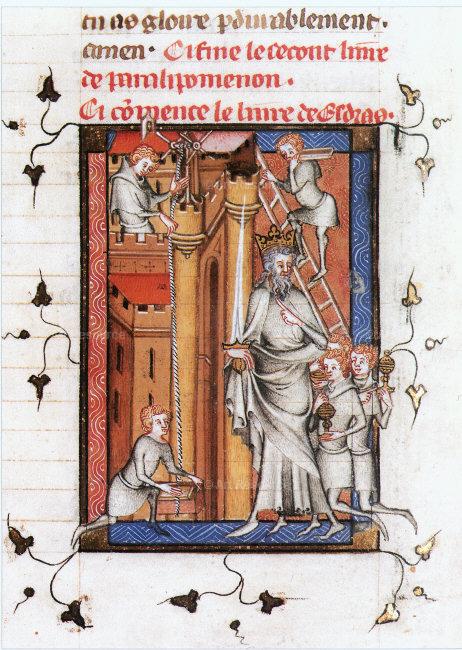 tu as gloire pdurablement.
amen. Ci fine le secont livre
de paralipomenon.
Ci cōmence le livre de Esdras.